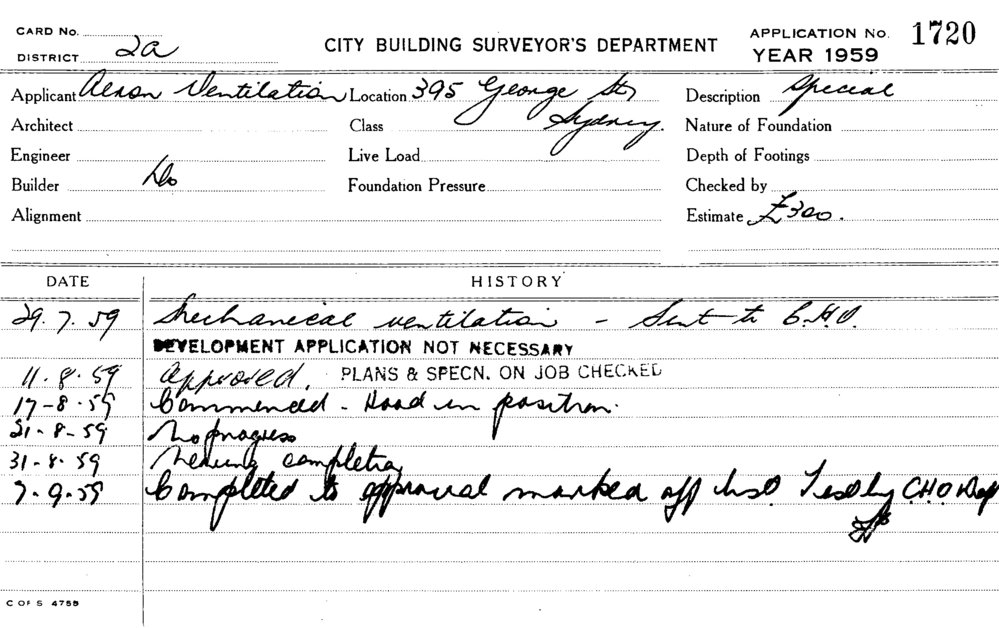 CARD No.
DISTRICT 2a
CITY BUILDING SURVEYOR'S DEPARTMENT
APPLICATION No. 1720
YEAR 1959
Applicant Ventilation Location 395 George St, Description Special
Architect Class Sydney. Nature of Foundation
Engineer Live Load Depth of Footings
Builder Do Foundation Pressure Checked by
Alignment Estimate £300.
DATE HISTORY
29.7.59 Mechanical ventilation - Sent to C.H.O.
DEVELOPMENT APPLICATION NOT NECESSARY
11.8.59 Approved. PLANS & SPECN. ON JOB CHECKED
17-8.59 Commenced - Hood in position.
21-8-59 No progress
31-8-59 Nearing completion
7-9-59 Completed to approval marked off Test by C.H.O Dep
C OF S 4759